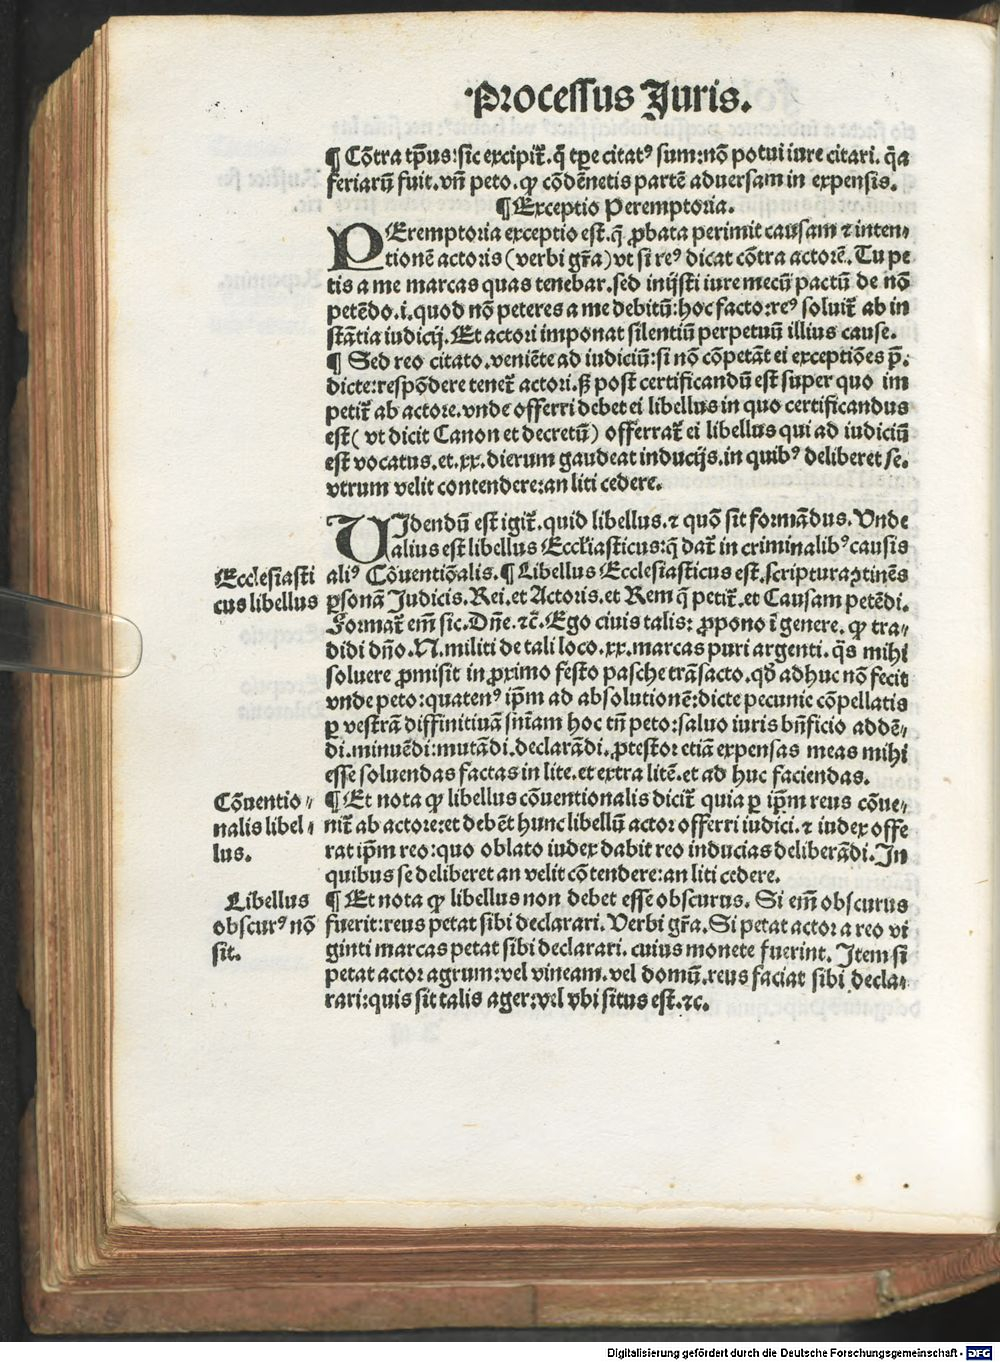 Processus Juris.
¶ Cõtra tp̃us: sic excipit̃. q̃ tp̃e citatꝰ sum: nõ potui iure citari. q̃a
feriarũ fuit. vñ peto. ꝙ cõdẽnetis partẽ aduersam in expensis.
¶ Exceptio Peremptoria.
PEremptoria exceptio est. q̃ ꝓbata perimit causam ⁊ inten⸗
tionẽ actoris (verbi gr̃a) vt si reꝰ dicat cõtra actorẽ. Tu pe
tis a me marcas quas tenebar. sed inijsti iure mecũ pactũ de nõ
petẽdo .i. quod nõ peteres a me debitũ: hoc facto: reꝰ soluit̃ ab in
stãtia iudicij. Et actori imponat silentiũ perpetuũ illius cause.
¶ Sed reo citato. veniẽte ad iudiciũ: si nõ cõpetãt ei exceptiões p̃.
dicte: respõdere tenet̃ actori. sꝫ post certificandũ est super quo im
petit̃ ab actore. vnde offerri debet ei libellus in quo certificandus
est ( vt dicit Canon et decretũ) offerrat̃ ei libellus qui ad iudiciũ
est vocatus. et .xx. dierum gaudeat inducijs. in quibꝰ deliberet se.
vtrum velit contendere: an liti cedere.
VIdendũ est igit̃. quid libellus. ⁊ quõ sit formãdus. Vnde
alius est libellus Eccłiasticus: q̃ dat̃ in criminalibꝰ causis
Ecclesiasti
cus libellus
aliꝰ Cõuentiõalis. ¶ Libellus Ecclesiasticus est. scriptura ꝯtinẽs
ꝑsonã Judicis. Rei. et Actoris. et Rem q̃ petit̃. et Causam petẽdi.
Format̃ em̃ sic. Dñe. ⁊c̃. Ego ciuis talis: ꝓpono ĩ genere. ꝙ tra⸗
didi dño. N. militi de tali loco .xx. marcas puri argenti. q̃s mihi
soluere ꝓmisit in ꝓximo festo pasche trãsacto. qd̃ adhuc nõ fecit
vnde peto: quatenꝰ ip̃m ad absolutionẽ: dicte pecunie cõpellatis
ꝑ vestrã diffinitiuã sñtam hoc tñ peto: saluo iuris bñficio addẽ⸗
di. minuẽdi: mutãdi. declarãdi. ꝓtestor etiã expensas meas mihi
esse soluendas factas in lite. et extra litẽ. et ad huc faciendas.
Cõuentio⸗
nalis libel⸗
lus.
¶ Et nota ꝙ libellus cõuentionalis dicit̃ quia ꝑ ip̃m reus cõue⸗
nit̃ ab actore: et debẽt hunc libellũ actor offerri iudici. ⁊ iudex offe
rat ip̃m reo: quo oblato iudex dabit reo inducias deliberãdi. In
quibus se deliberet an velit cõtendere: an liti cedere.
Libellus
obscurꝰ nõ
sit.
¶ Et nota ꝙ libellus non debet esse obscurus. Si em̃ obscurus
fuerit: reus petat sibi declarari. Verbi gr̃a. Si petat actor a reo vi
ginti marcas petat sibi declarari. cuius monete fuerint. Item si
petat actor agrum: vel vineam. vel domũ. reus faciat sibi decla⸗
rari: quis sit talis ager: vel vbi situs est. ⁊c.
Digitalisierung gefördert durch die Deutsche Forschungsgemeinschaft - DFG